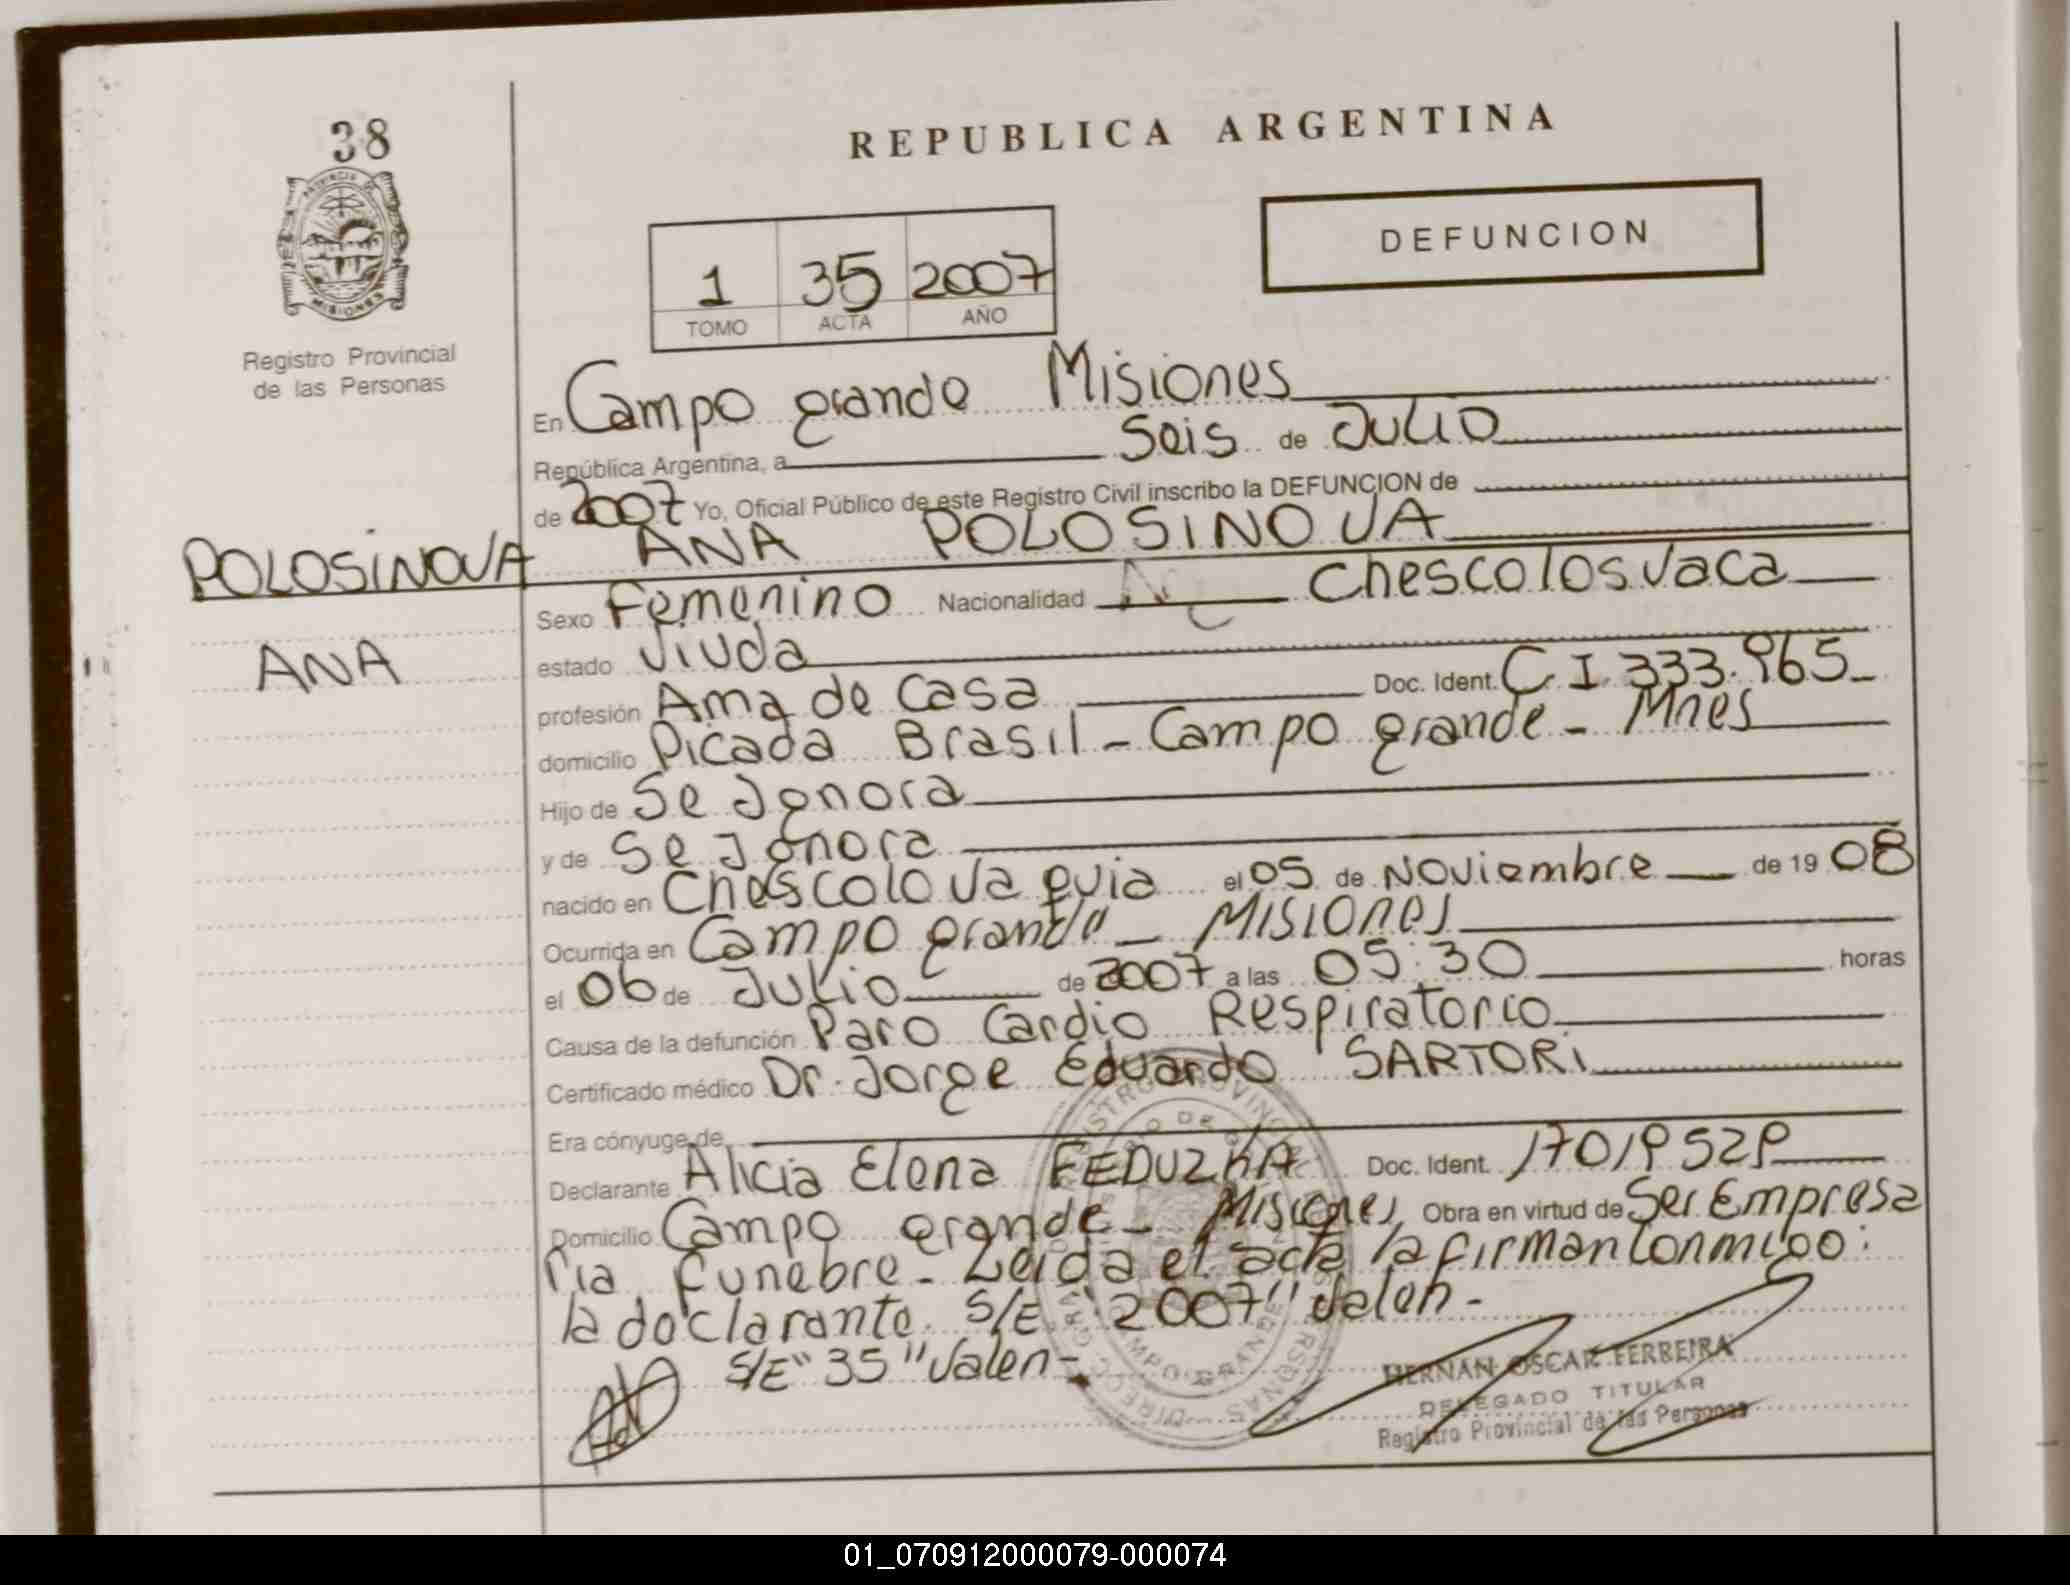 38
REPUBLICA ARGENTINA
PROVINCIA DE
MISIONES
Registro Provincial
de las Personas
DEFUNCION
1 35 2007
TOMO ACTA AÑO
En Campo grande Misiones
República Argentina, a Seis de Julio
de 2007 Yo, Oficial Público de este Registro Civil inscribo la DEFUNCION de
POLOSINOVA ANA POLOSINOVA
Sexo Femenino Nacionalidad Chescolosvaca
ANA
estado viuda
profesión Ama de Casa Doc. Ident. C.I. 333.965
domicilio Picada Brasil - Campo grande - Mnes
Hijo de Se Ignora
y de Se Ignora
nacido en Chescolovaquia el 05 de Noviembre de 19 08
Ocurrida en Campo grande - Misiones
el 06 de Julio de 2007 a las 05:30 horas
Causa de la defunción Paro Cardio Respiratorio
Certificado médico Dr. Jorge Eduardo SARTORI
Era cónyuge de
Declarante Alicia Elena FEDUZKA Doc. Ident. 17019529
Domicilio Campo grande - Misiones Obra en virtud de Ser Empresa
ria funebre - Leida el acta la firman conmigo:
la declarante. S/E "2007" valen -
S/E "35" valen -
HERNAN OSCAR FERREIRA
DELEGADO TITULAR
Registro Provincial de las Personas
01_070912000079-000074